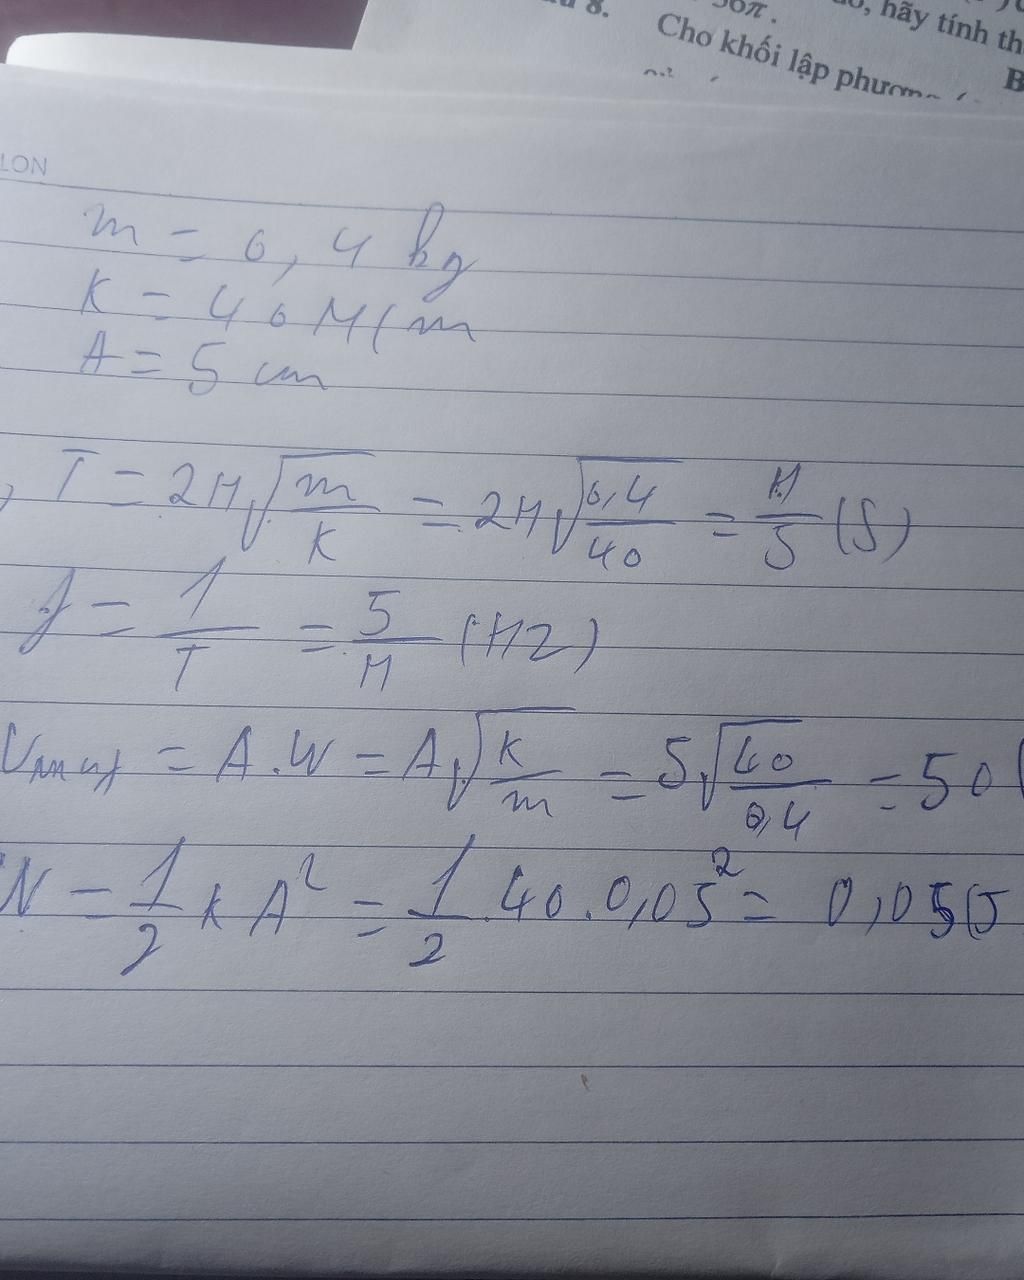 36π.
8.
hãy tính th
Cho khối lập phương
B
LON
m = 0,4 kg
K = 40 N/m
A = 5 cm
T = 2π√(m/K) = 2π√(0,4/40) = π/5 (s)
f = 1/T = 5/π (Hz)
Vmax = A.W = A√(K/m) = 5√(40/0,4) = 50(
W = 1/2 k A² = 1/2 .40.0,05² = 0,05(J